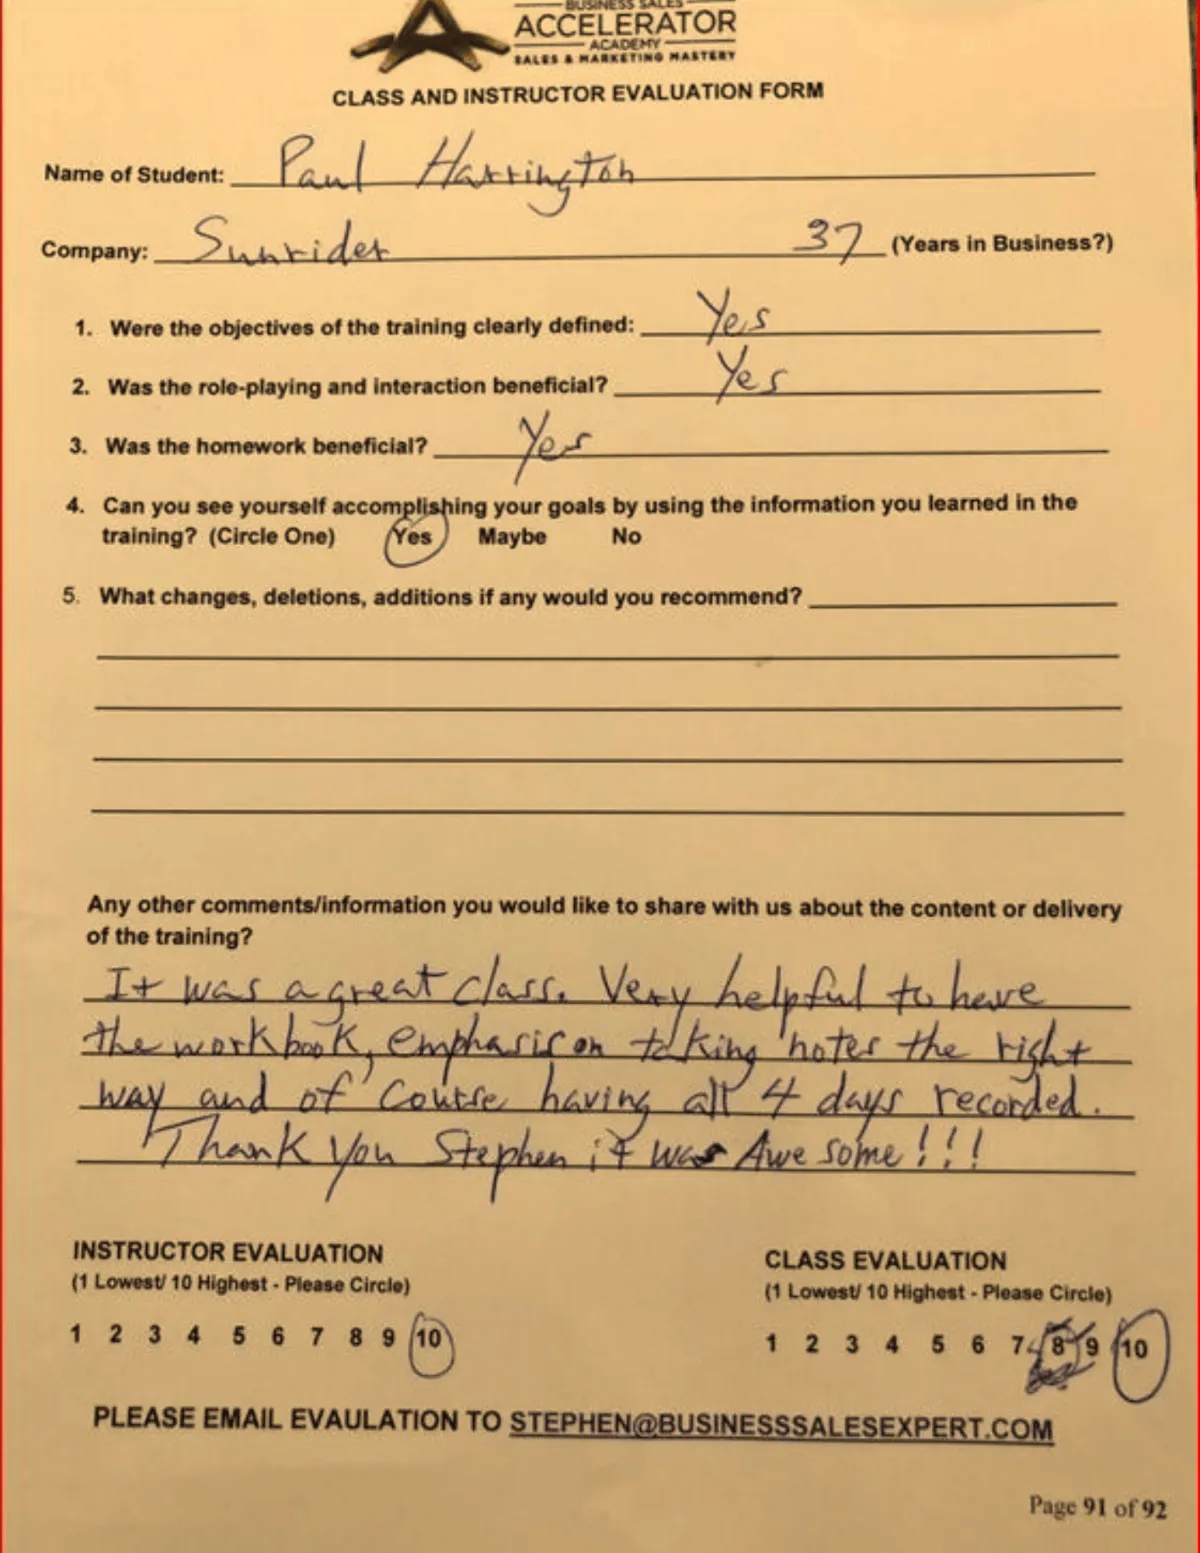 BUSINESS SALES
ACCELERATOR
ACADEMY
SALES & MARKETING MASTERY
CLASS AND INSTRUCTOR EVALUATION FORM
Name of Student: Paul Harrington
Company: Sunrider 37 (Years in Business?)
1. Were the objectives of the training clearly defined: Yes
2. Was the role-playing and interaction beneficial? Yes
3. Was the homework beneficial? Yes
4. Can you see yourself accomplishing your goals by using the information you learned in the
training? (Circle One) Yes Maybe No
5. What changes, deletions, additions if any would you recommend?
Any other comments/information you would like to share with us about the content or delivery
of the training?
It was a great class. Very helpful to have
the workbook, emphasis on taking notes the right
way and of course having all 4 days recorded.
Thank you Stephen it was Awesome!!!
INSTRUCTOR EVALUATION CLASS EVALUATION
(1 Lowest/ 10 Highest - Please Circle) (1 Lowest/ 10 Highest - Please Circle)
1 2 3 4 5 6 7 8 9 10 1 2 3 4 5 6 7 8 9 10
PLEASE EMAIL EVAULATION TO STEPHEN@BUSINESSSALESEXPERT.COM
Page 91 of 92